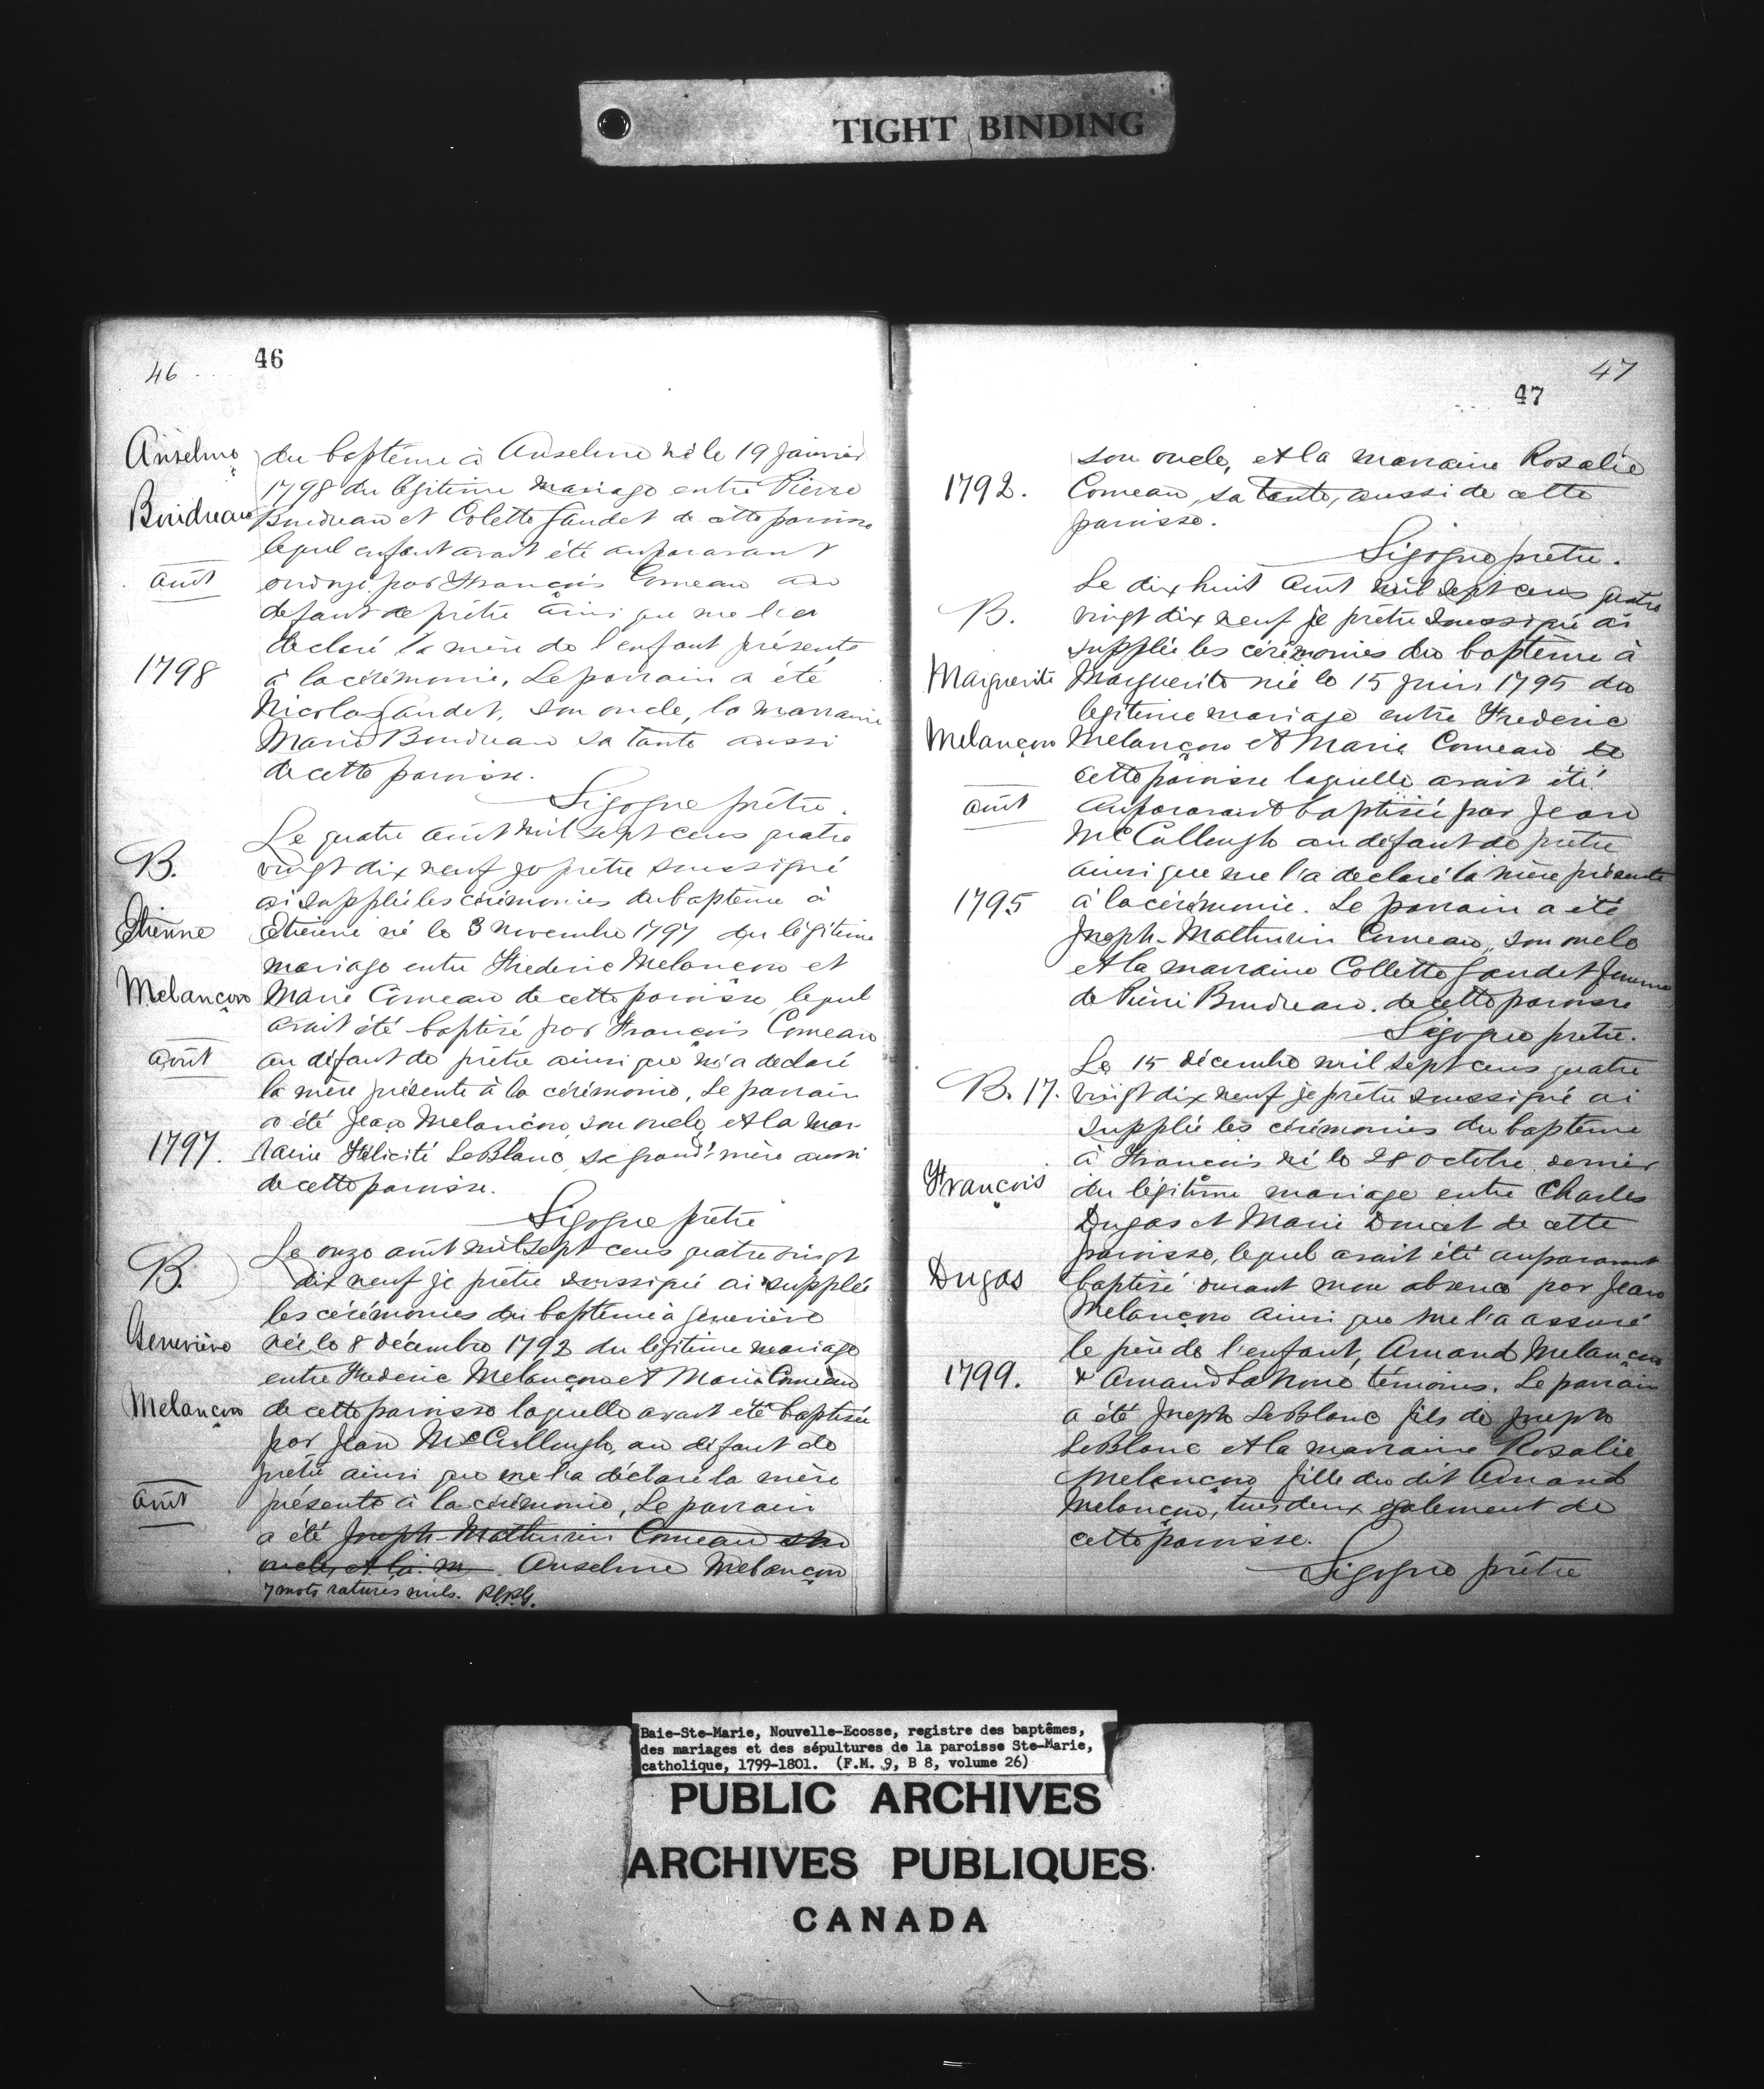 TIGHT BINDING
46
46
Anselme
Boudreau
août
1798
du baptême à Anselme né le 19 janvier
1798 du légitime mariage entre Pierre
Boudreau et Colette Gaudet de cette paroisse
lequel enfant avait été auparavant
ondoyé par François Comeau au
defaut de prêtre ainsi que me l'a
declaré la mère de l'enfant présente
à la cérémonie. Le parrain a été
Nicolas Gaudet, son oncle, la marraine
Marie Boudreau sa tante aussi
de cette paroisse.
Sigogne prêtre.
B.
Etienne
Melançon
août
1797.
Le quatre août mil sept cens quatre
vingt dix neuf je prêtre soussigné
ai supplée les cérémonies du baptême à
Etienne né le 3 novembre 1797 du légitime
mariage entre Frederic Melançon et
Marie Comeau de cette paroisse, lequel
avait été baptisé par François Comeau
au défaut de prêtre ainsi que m'a declaré
la mère présente à la cérémonie. Le parrain
a été Jean Melançon, son oncle, et la mar-
raine Félicité LeBlanc, sa grand'mère aussi
de cette paroisse.
Sigogne prêtre
B.
Geneviève
Melançon
août
Le onze août mil sept cens quatre vingt
dix neuf je prêtre soussigné ai supplée
les cérémonies du baptême à Geneviève
née le 8 décembre 1792 du légitime mariage
entre Frederic Melançon et Marie Comeau
de cette paroisse laquelle avait été baptisée
par Jean McCullough, au défaut de
prêtre ainsi que me l'a déclaré la mère
présente à la cérémonie. Le parrain
a été Joseph-Mathurin Comeau son
oncle, et la m. Anselme Melançon
7 mots raturés nuls.
47
47
1792.
son oncle, et la marraine Rosalie
Comeau, sa tante, aussi de cette
paroisse.
Sigogne prêtre.
B.
Marguerite
Melançon
août
1795
Le dix huit août mil sept cens quatre
vingt dix neuf je prêtre soussigné ai
supplée les cérémonies du baptême à
Marguerite née le 15 juin 1795 du
légitime mariage entre Frederic
Melançon et Marie Comeau de
cette paroisse laquelle avait été
auparavant baptisée par Jean
McCullough au défaut de prêtre
ainsi que me l'a declaré la mère présente
à la cérémonie. Le parrain a été
Joseph-Mathurin Comeau, son oncle
et la marraine Collette Gaudet femme
de Pierre Boudreau de cette paroisse
Sigogne prêtre.
B. 17.
François
Dugas
1799.
Le 15 décembre mil sept cens quatre
vingt dix neuf je prêtre soussigné ai
supplée les cérémonies du baptême
à François né le 28 octobre dernier
du légitime mariage entre Charles
Dugas et Marie Doucet de cette
paroisse, lequel avait été auparavant
baptisé durant mon absence par Jean
Melançon ainsi que me l'a assuré
le père de l'enfant, Amand Melançon
& Amand Lanoue témoins. Le parrain
a été Joseph LeBlanc fils de Joseph
LeBlanc et la marraine Rosalie
Melançon fille du dit Amand
Melançon, tous deux également de
cette paroisse.
Sigogne prêtre
Baie-Ste-Marie, Nouvelle-Ecosse, registre des baptêmes,
des mariages et des sépultures de la paroisse Ste-Marie,
catholique, 1799-1801. (F.M. 9, B 8, volume 26)
PUBLIC ARCHIVES
ARCHIVES PUBLIQUES
CANADA